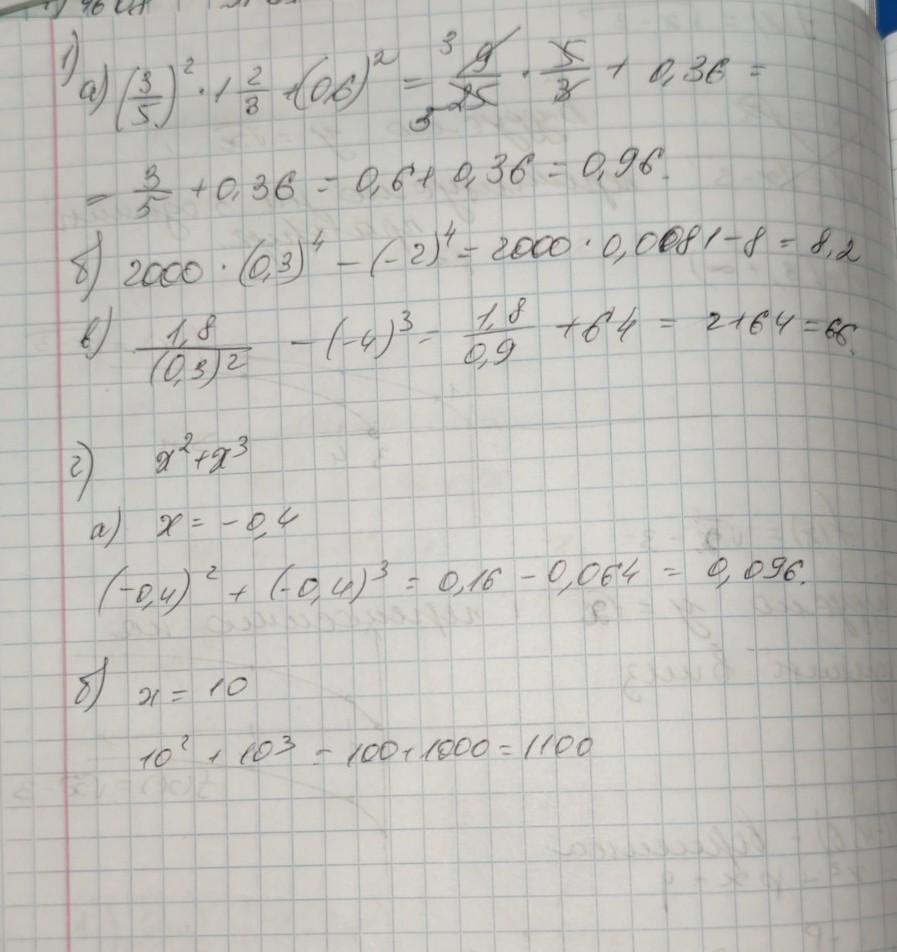 1) а) (3/5)² · 1 2/3 + (0,6)² = 9/25 · 5/3 + 0,36 =
= 3/5 + 0,36 = 0,6 + 0,36 = 0,96.
б) 2000 · (0,3)⁴ - (-2)⁴ = 2000 · 0,0081 - 8 = 8,2
в) 1,8/(0,3)² - (-4)³ = 1,8/0,9 + 64 = 2+64 = 66.
г) x² + x³
а) x = -0,4
(-0,4)² + (-0,4)³ = 0,16 - 0,064 = 0,096.
б) x = 10
10² + 10³ = 100 + 1000 = 1100